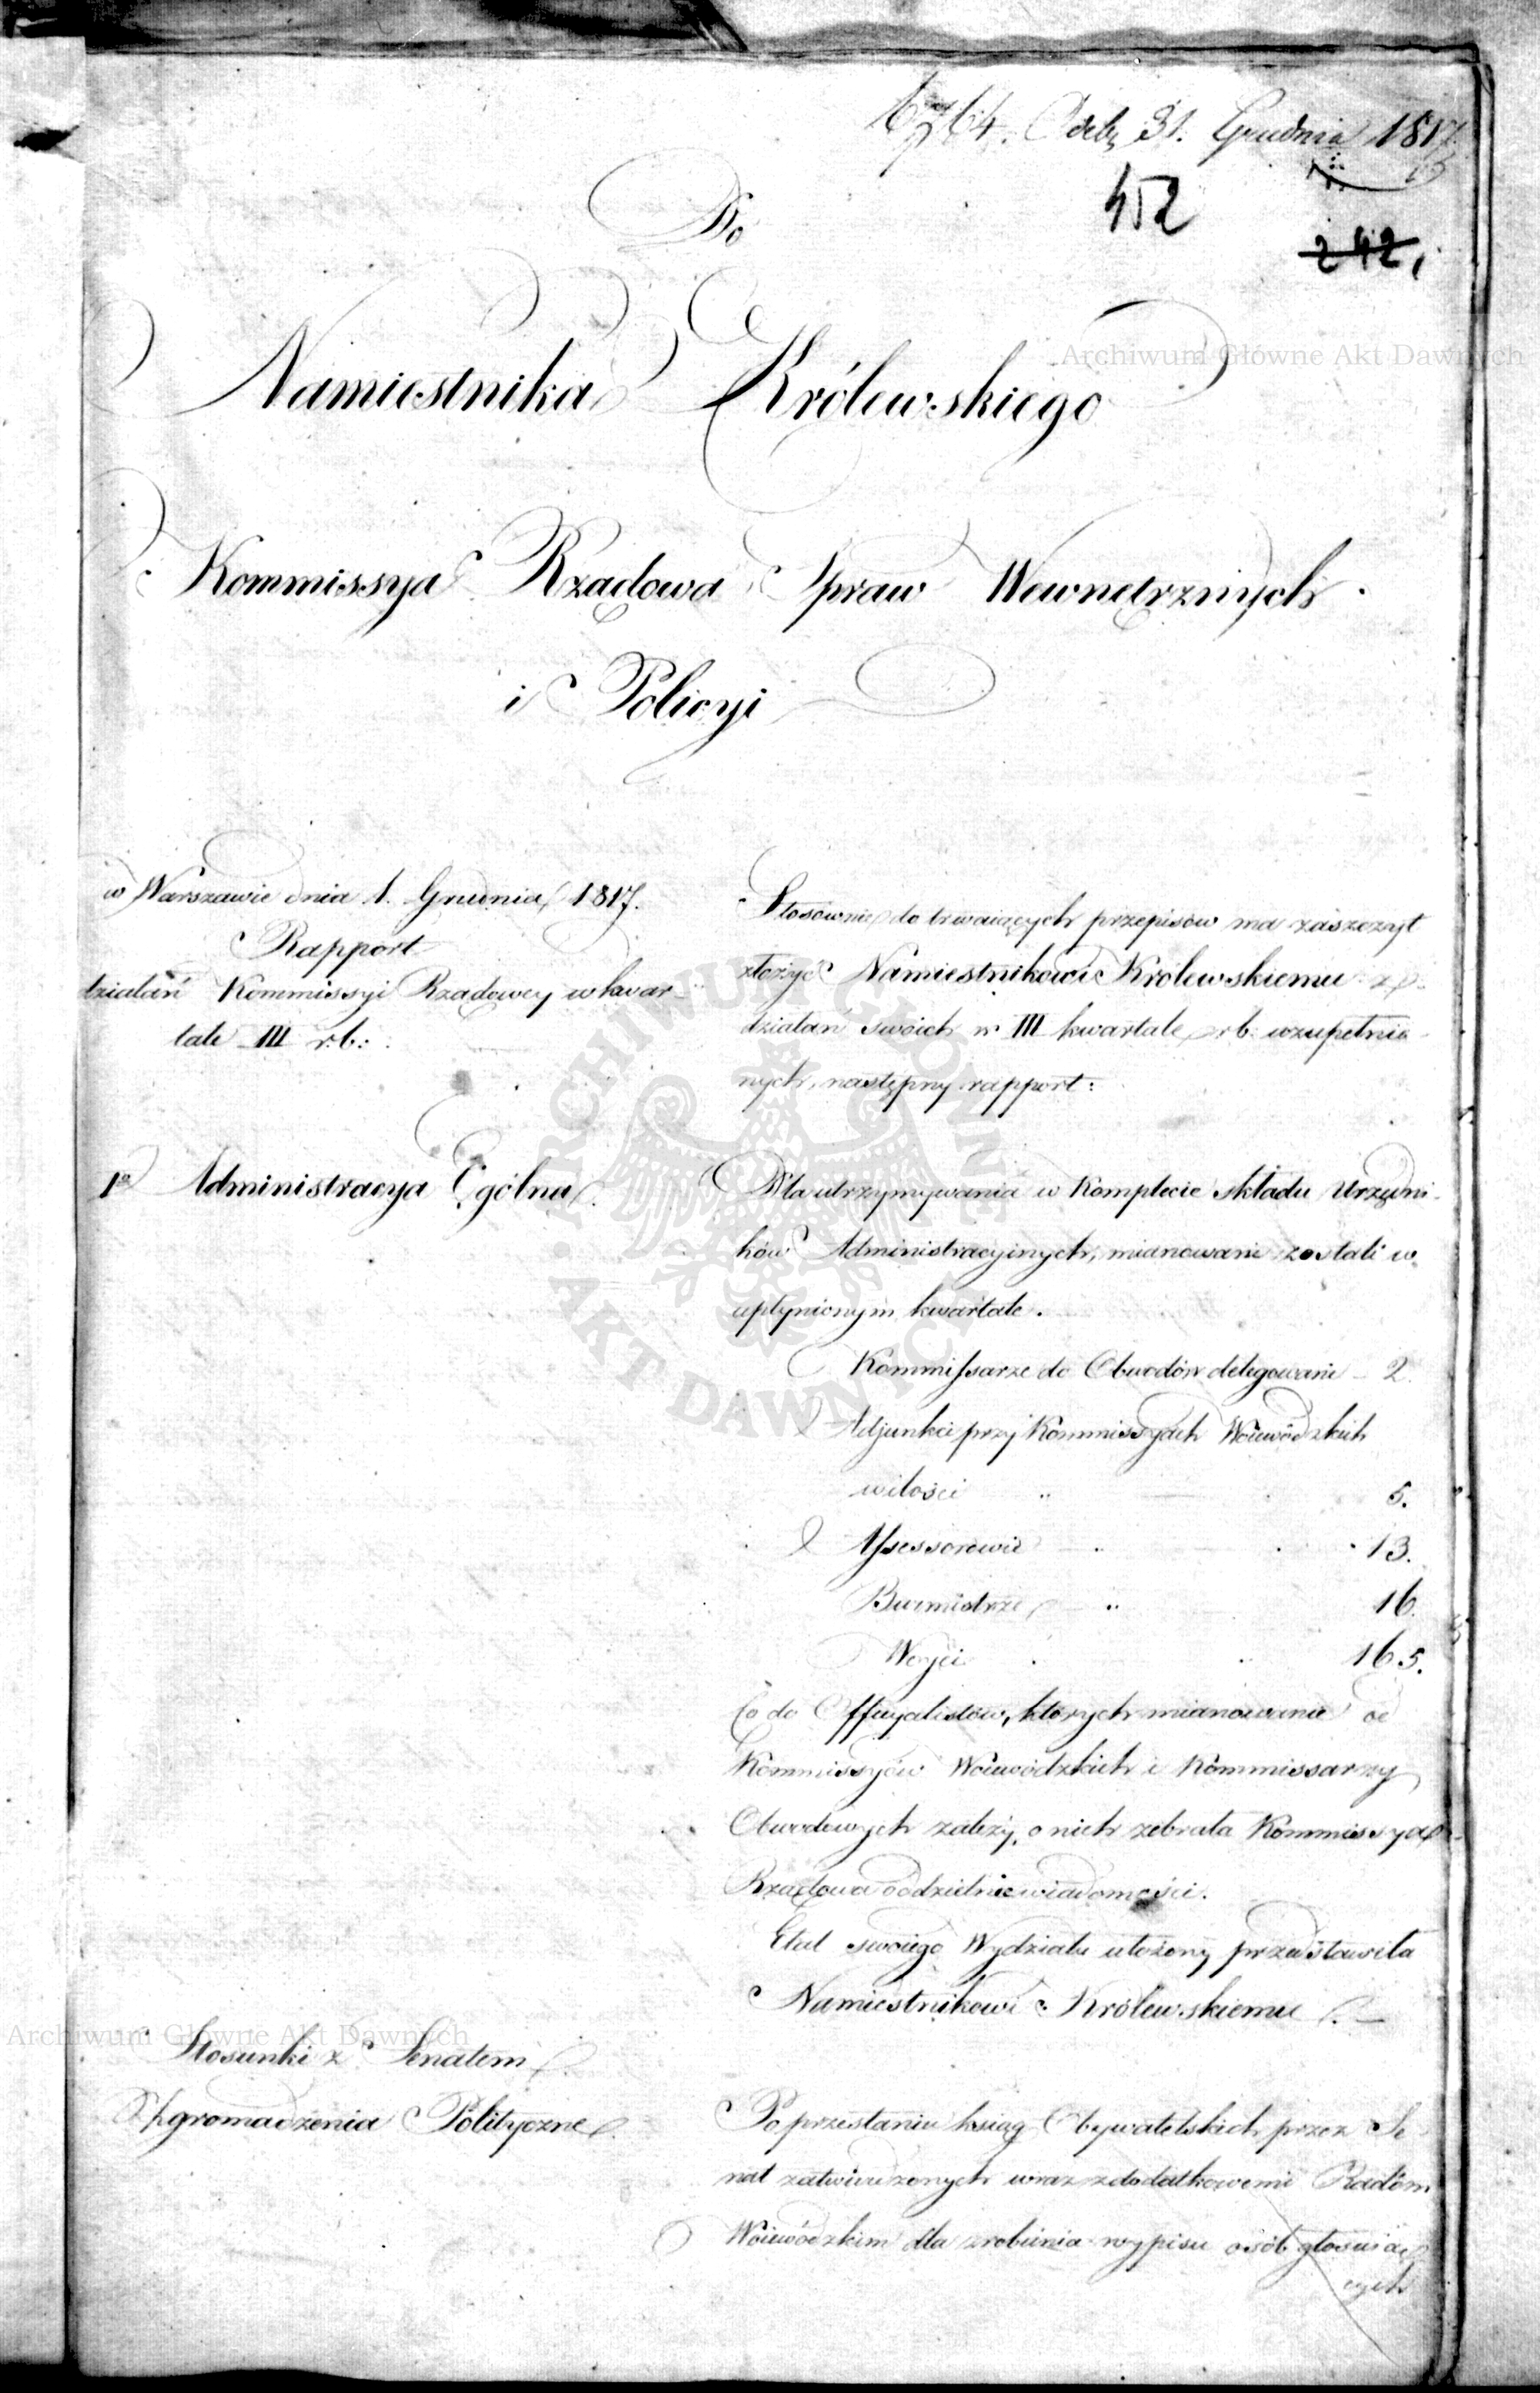 Odeb. 31. Grudnia 1817
452
242,
Do
Namiestnika Królewskiego
Archiwum Główne Akt Dawnych
Kommissya Rządowa Spraw Wewnętrznych
i Policyi
w Warszawie dnia 1. Grudnia 1817.
Rapport
działań Kommissyi Rządowey w kwar-
tale III r.b:
Stosownie do trwaiących przepisów ma zaszczyt
złożyć Namiestnikowi Królewskiemu z
działań swoich w III kwartale r.b. uzupełnio-
nych, następny rapport:
ARCHIWUM GŁÓWNE AKT DAWNYCH
1o Administracya Ogólna.
Dla utrzymywania w Komplecie składu Urzędni-
ków Administracyinych, mianowani zostali w
upłynionym kwartale.
Kommissarze do Obwodów delegowani - 2.
Adjunkci przy Kommissyach Woiewódzkich
w ilości 5.
Assessorowie 13.
Burmistrze 16.
Woyci 165.
Co do Officyalistów, których mianowanie od
Kommissyów Woiewódzkich i Kommissarzy
Obwodowych zależy, o nich zebrała Kommissya
Rządowa oddzielnie wiadomości.
Etat swoiego Wydziału ułożony przedstawiła
Namiestnikowi Królewskiemu.
Archiwum Główne Akt Dawnych
Stosunki z Senatem
Zgromadzenia Polityczne.
Po przesłaniu ksiąg Obywatelskich przez Se
nat zatwierdzonych wraz z dodatkowemi Radom
Woiewódzkim dla zrobienia wypisu osób głosuią-
cych